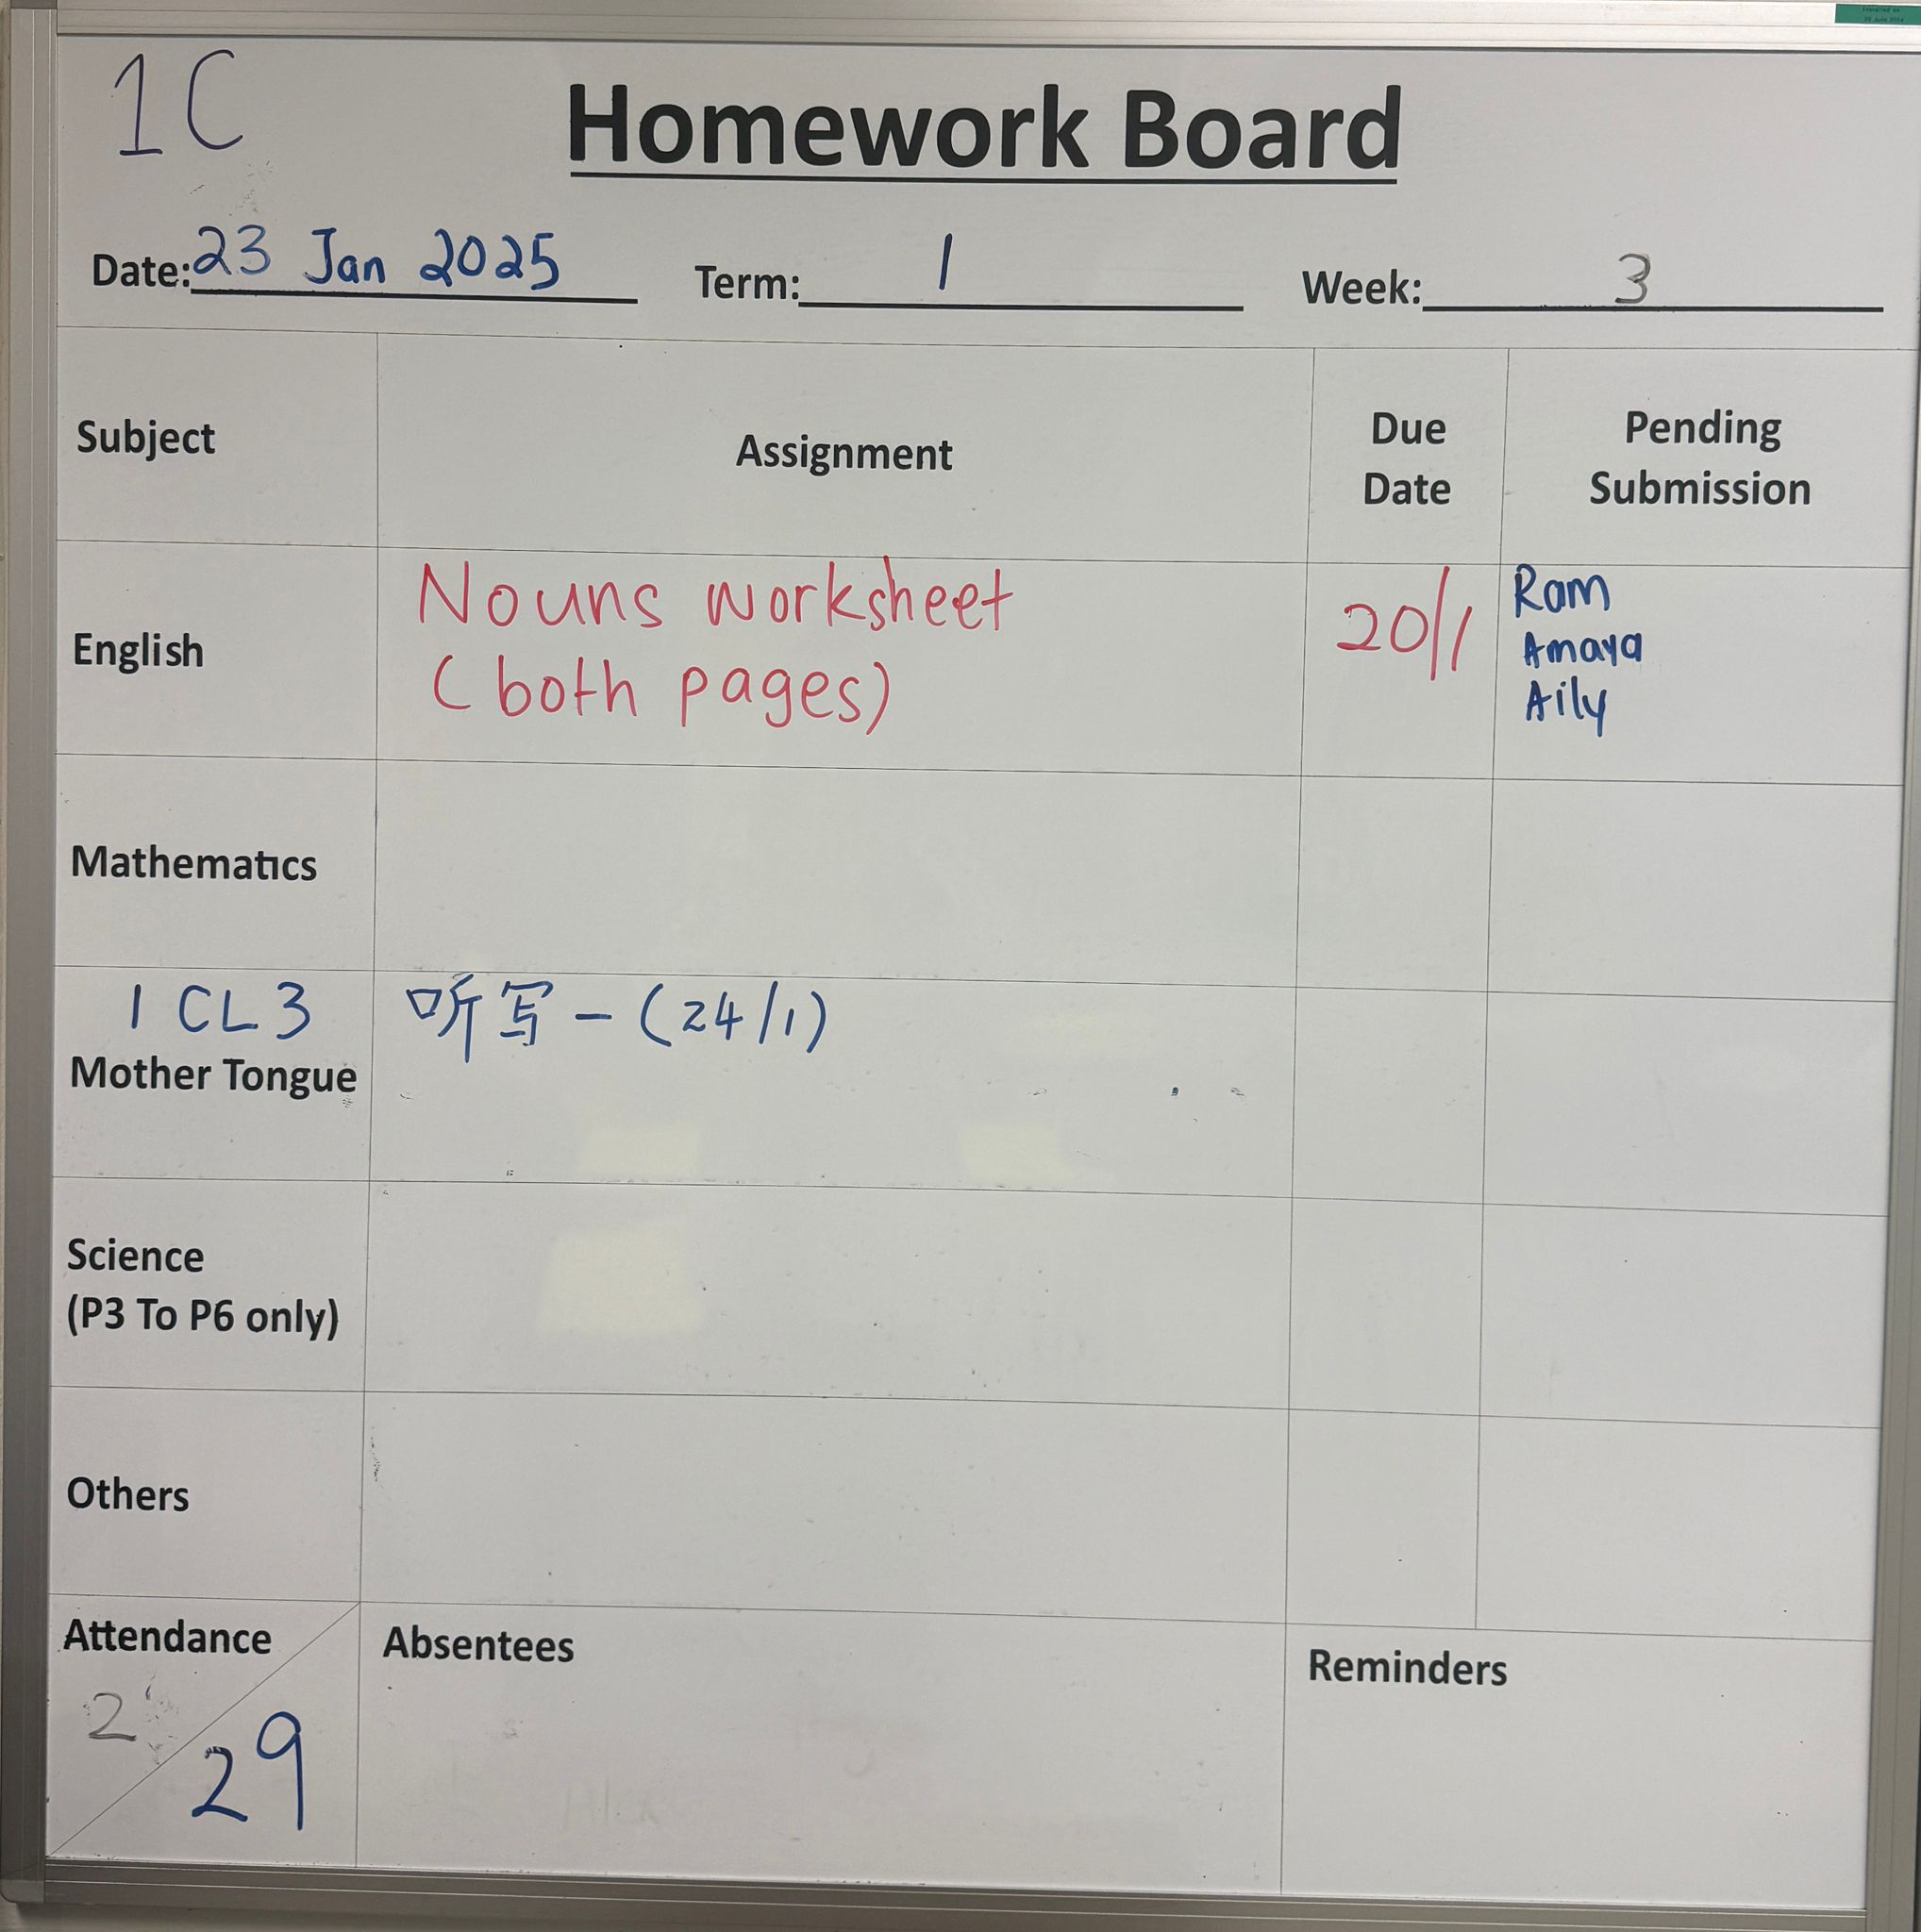 1C
Homework Board
Date: 23 Jan 2025 Term: 1 Week: 3
Subject Assignment Due Date Pending Submission
English
Nouns worksheet
(both pages)
20/1
Ram
Amaya
Aily
Mathematics
1 CL3
Mother Tongue
听写 - (24/1)
Science
(P3 To P6 only)
Others
Attendance
2
29
Absentees
Reminders